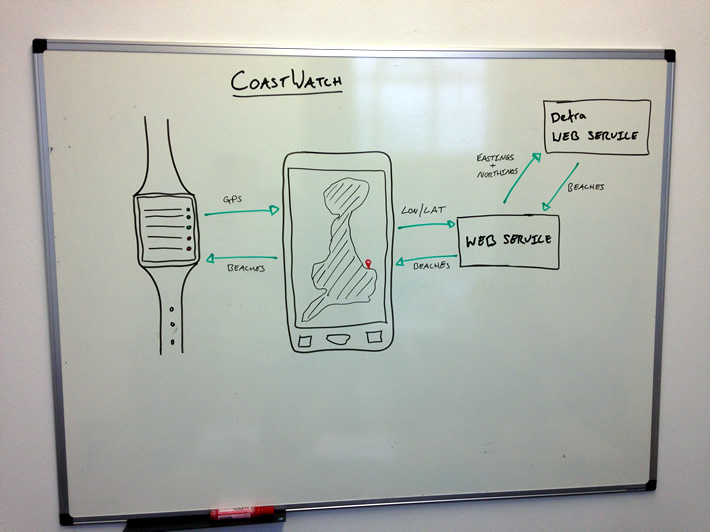 COASTWATCH
Defra
WEB SERVICE
EASTINGS
+
NORTHINGS
BEACHES
GPS
LON/LAT
WEB SERVICE
BEACHES
BEACHES